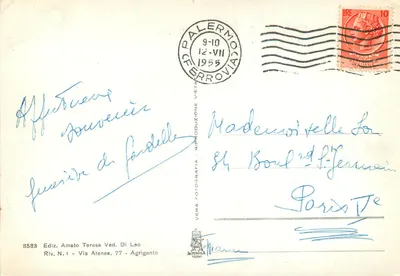 PALERMO
9-10
12·VII
1955
FERROVIA
LIRE 10
Affectueux
souvenir
de
Mademoiselle
84 Boul rd St Germain
Paris Ve
France
VERA FOTOGRAFIA
RIPRODUZIONE VIETATA
8583 Ediz. Amato Teresa Ved. Di Leo
Riv. N. 1 - Via Atenea, 77 - Agrigento